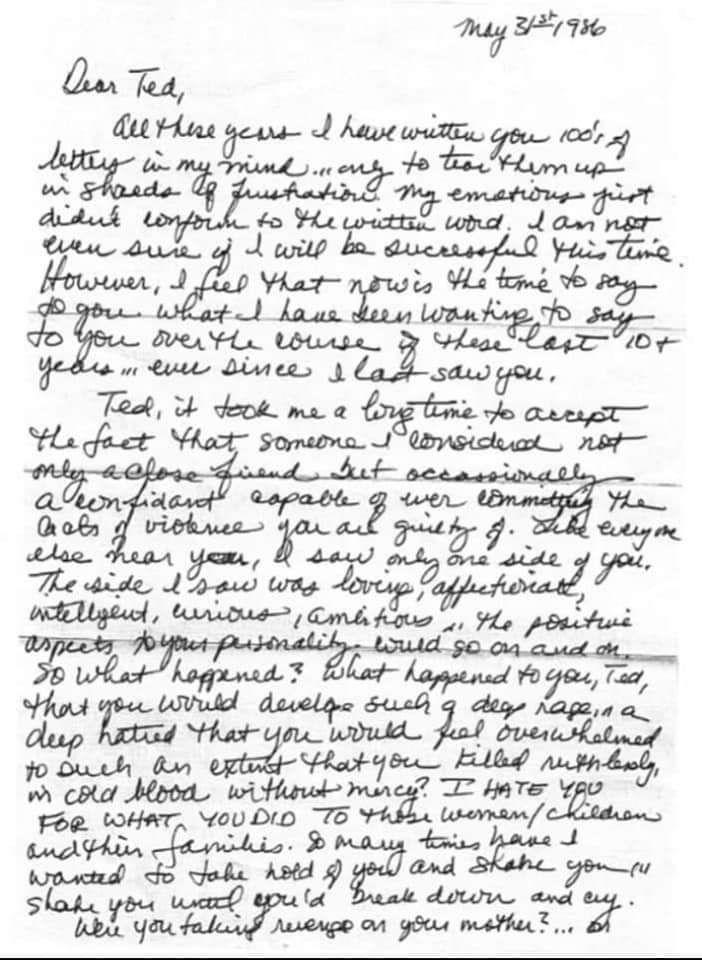 May 31st, 1986
Dear Ted,
All these years I have written you 100's of
letters in my mind... only to tear them up
in shreds of frustration. My emotions just
didn't conform to the written word. I am not
even sure if I will be successful this time.
However, I feel that now is the time to say
to you what I have been wanting to say
to you over the course of these last 10+
years... ever since I last saw you.
Ted, it took me a long time to accept
the fact that someone I considered not
only a close friend but occassionally
a confidant capable of ever committing the
acts of violence you are guilty of. Like everyone
else near you, I saw only one side of you.
The side I saw was loving, affectionate,
intelligent, curious, ambitious... the positive
aspects to your personality would go on and on.
So what happened? What happened to you, Ted,
that you would develop such a deep rage... a
deep hatred that you would feel overwhelmed
to such an extent that you killed ruthlessly,
in cold blood without mercy? I HATE YOU
FOR WHAT YOU DID TO those women/children
and their families. So many times have I
wanted to take hold of you and shake you...
shake you until you'd break down and cry.
Were you taking revenge on your mother?... or